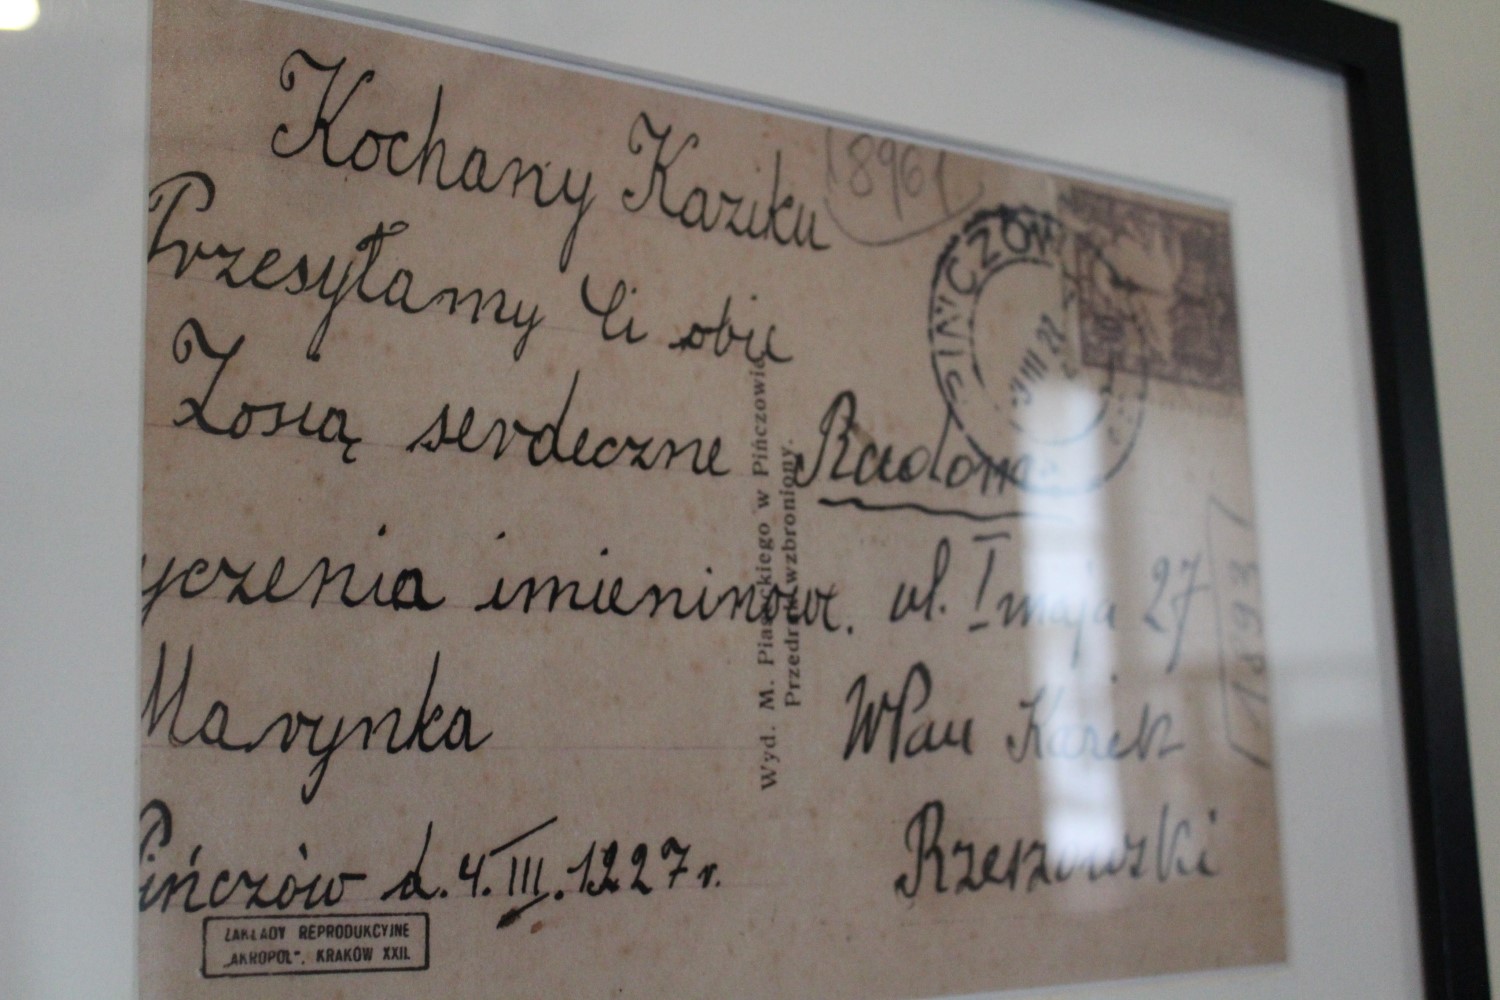 Kochany Kaziku
Przesyłamy Ci obie
Zosią serdeczne
yczenia imieninow.
Marynka
Pińczów d. 4. III. 1927 r.
ZAKŁADY REPRODUKCYJNE
„AKROPOL". KRAKÓW XXII.
Wyd. M. Piaseckiego w Pińczowie
Przedruk wzbroniony.
1896
PIŃCZÓW
Radom
ul. I maja 27
WPan Kazik
Rzeszowski
1893